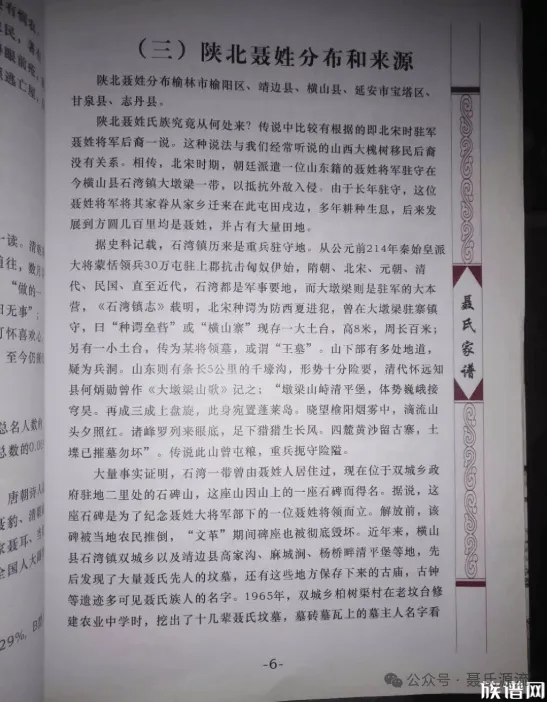 （三）陕北聂姓分布和来源
陕北聂姓分布榆林市榆阳区、靖边县、横山县、延安市宝塔区、
甘泉县、志丹县。
陕北聂姓氏族究竟从何处来？传说中比较有根据的即北宋时驻军
聂姓将军后裔一说。这种说法与我们经常听说的山西大槐树移民后裔
没有关系。相传，北宋时期，朝廷派遣一位山东籍的聂姓将军驻守在
今横山县石湾镇大墩梁一带，以抵抗外敌入侵。由于长年驻守，这位
聂姓将军将其家眷从家乡迁来在此屯田戍边，多年耕种生息，后来发
展到方圆几百里均是聂姓，并占有大量田地。
据史料记载，石湾镇历来是重兵驻守地。从公元前214年秦始皇派
大将蒙恬领兵30万屯驻上郡抗击匈奴伊始，隋朝、北宋、元朝、清
代、民国、直至近代，石湾都是军事要地，而大墩梁则是驻军的大本
营，《石湾镇志》载明，北宋种谔为防西夏进犯，曾在大墩梁驻寨镇
守，曰“种谔垒砦”或“横山寨”现存一大土台，高8米，周长百米；
另有一小土台，传为某将领墓，或谓“王墓”。山下部有多处地道，
疑为兵洞。山东则有条长5公里的千壕沟，形势十分险要，清代怀远知
县何炳勋曾作《大墩梁山歌》记之；“墩梁山峙清平堡，体势巍峨接
穹昊。再成三成上盘旋，此身宛置蓬莱岛。晓望榆阳烟雾中，滴流山
头夕照红。诸峰罗列来眼底，足下猎猎生长风。四麓黄沙留古寨，土
堞已摧墓勿坏”。传说此山曾屯粮，重兵扼守险隘。
大量事实证明，石湾一带曾由聂姓人居住过，现在位于双城乡政
府驻地二里处的石碑山，这座山因山上的一座石碑而得名。据说，这
座石碑是为了纪念聂姓大将军部下的一位聂姓将领而立。解放前，该
碑被当地农民推倒，“文革”期间碑座也被彻底毁坏。近年来，横山
县石湾镇双城乡以及靖边县高家沟、麻城涧、杨桥畔清平堡等地，先
后发现了大量聂氏先人的坟墓，还有这些地方保存下来的古庙，古钟
等遗迹多可见聂氏族人的名字。1965年，双城乡柏树渠村在老坟台修
建农业中学时，挖出了十几辈聂氏坟墓，墓砖墓瓦上的墓主人名字看
-6-
聂氏家谱
一读。清明
道往，数月
“做的一
日无事”；
丁怀喜欢心
至今仍拆
总名人数的
总数的0.00
唐朝诗人
聂豹、清
家聂耳、当
全国人大副
29%，
公众号·聂氏源流
族谱网